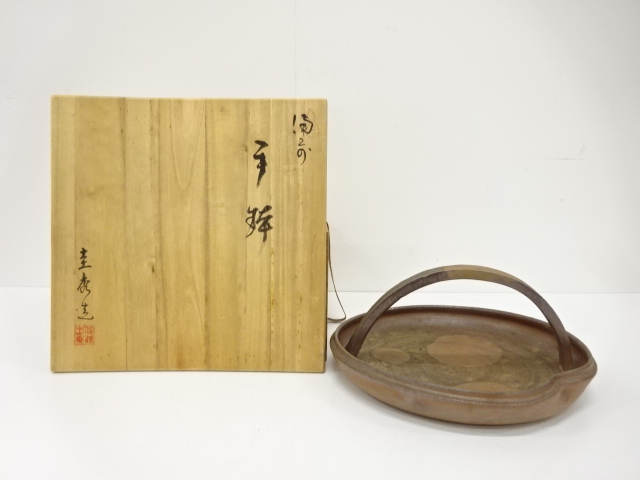 備前
手鉢
圭秀造